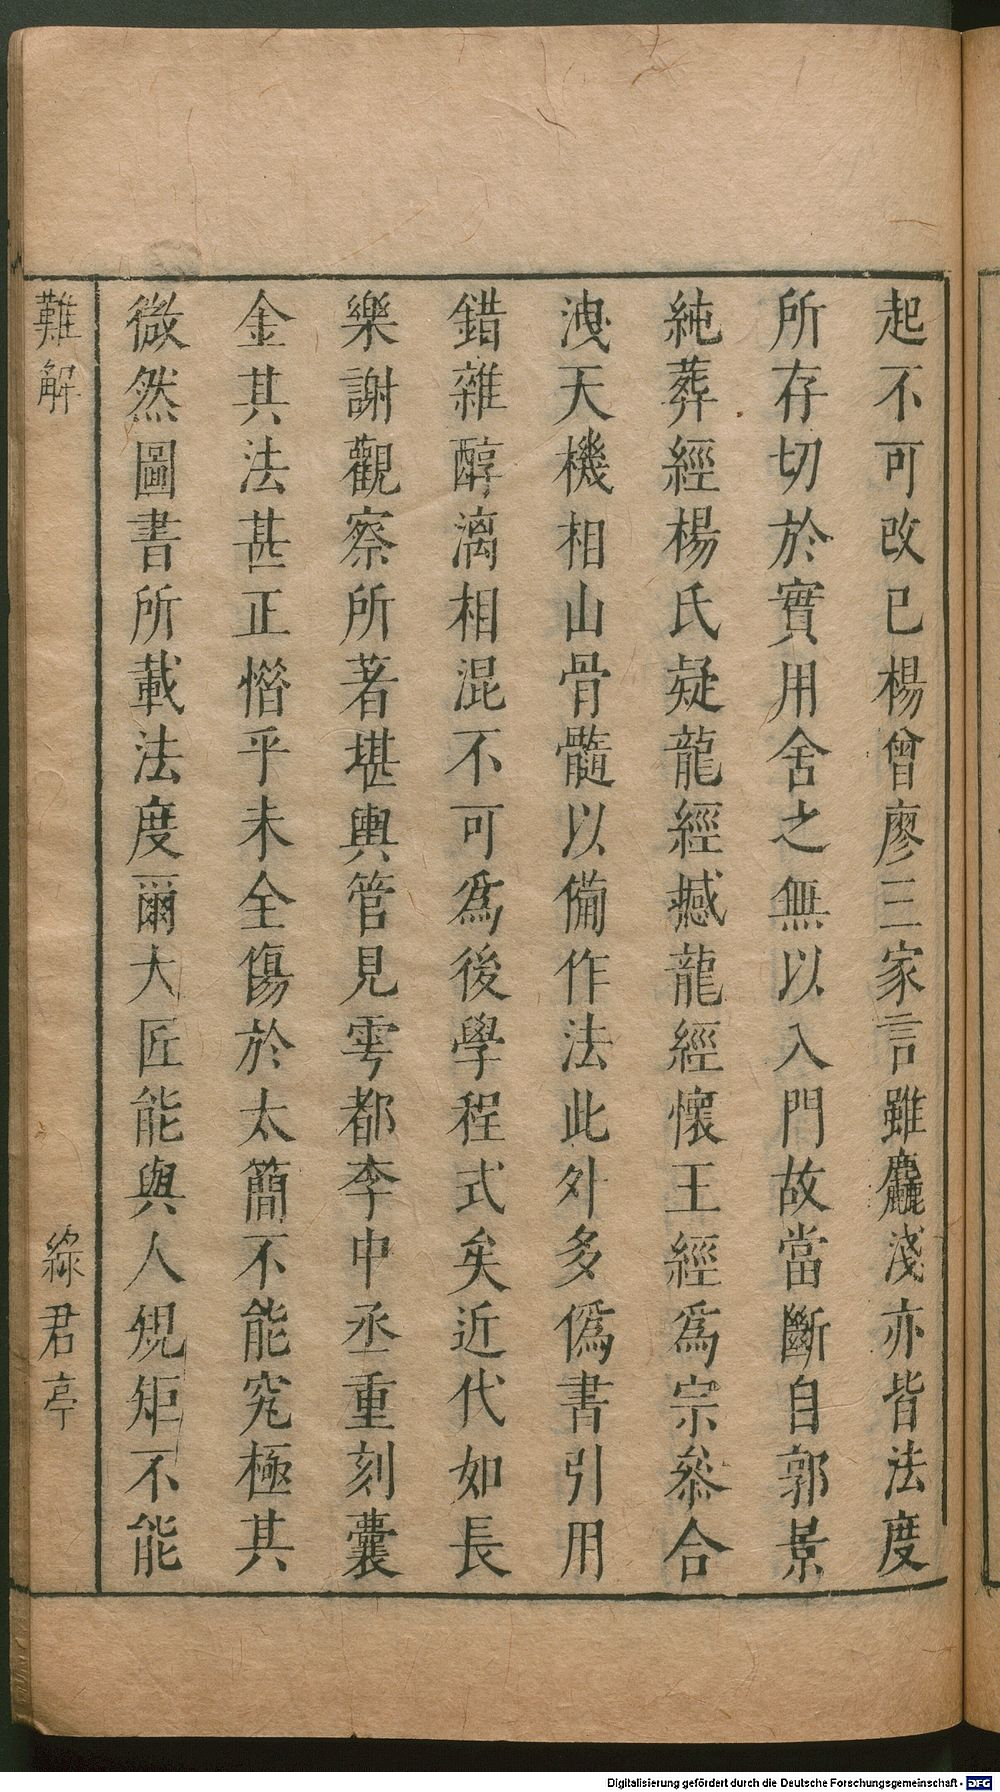 起不可改已楊曾廖三家言雖麤淺亦皆法度
所存切於實用舍之無以入門故當斷自郭景
純葬經楊氏疑龍經撼龍經懷王經爲宗叅合
洩天機相山骨髓以備作法此外多僞書引用
錯雜醇漓相混不可爲後學程式矣近代如長
樂謝觀察所著堪輿管見雩都李中丞重刻囊
金其法甚正惜乎未全傷於太簡不能究極其
微然圖書所載法度爾大匠能與人規矩不能
難解
綠君亭
Digitalisierung gefördert durch die Deutsche Forschungsgemeinschaft - DFG